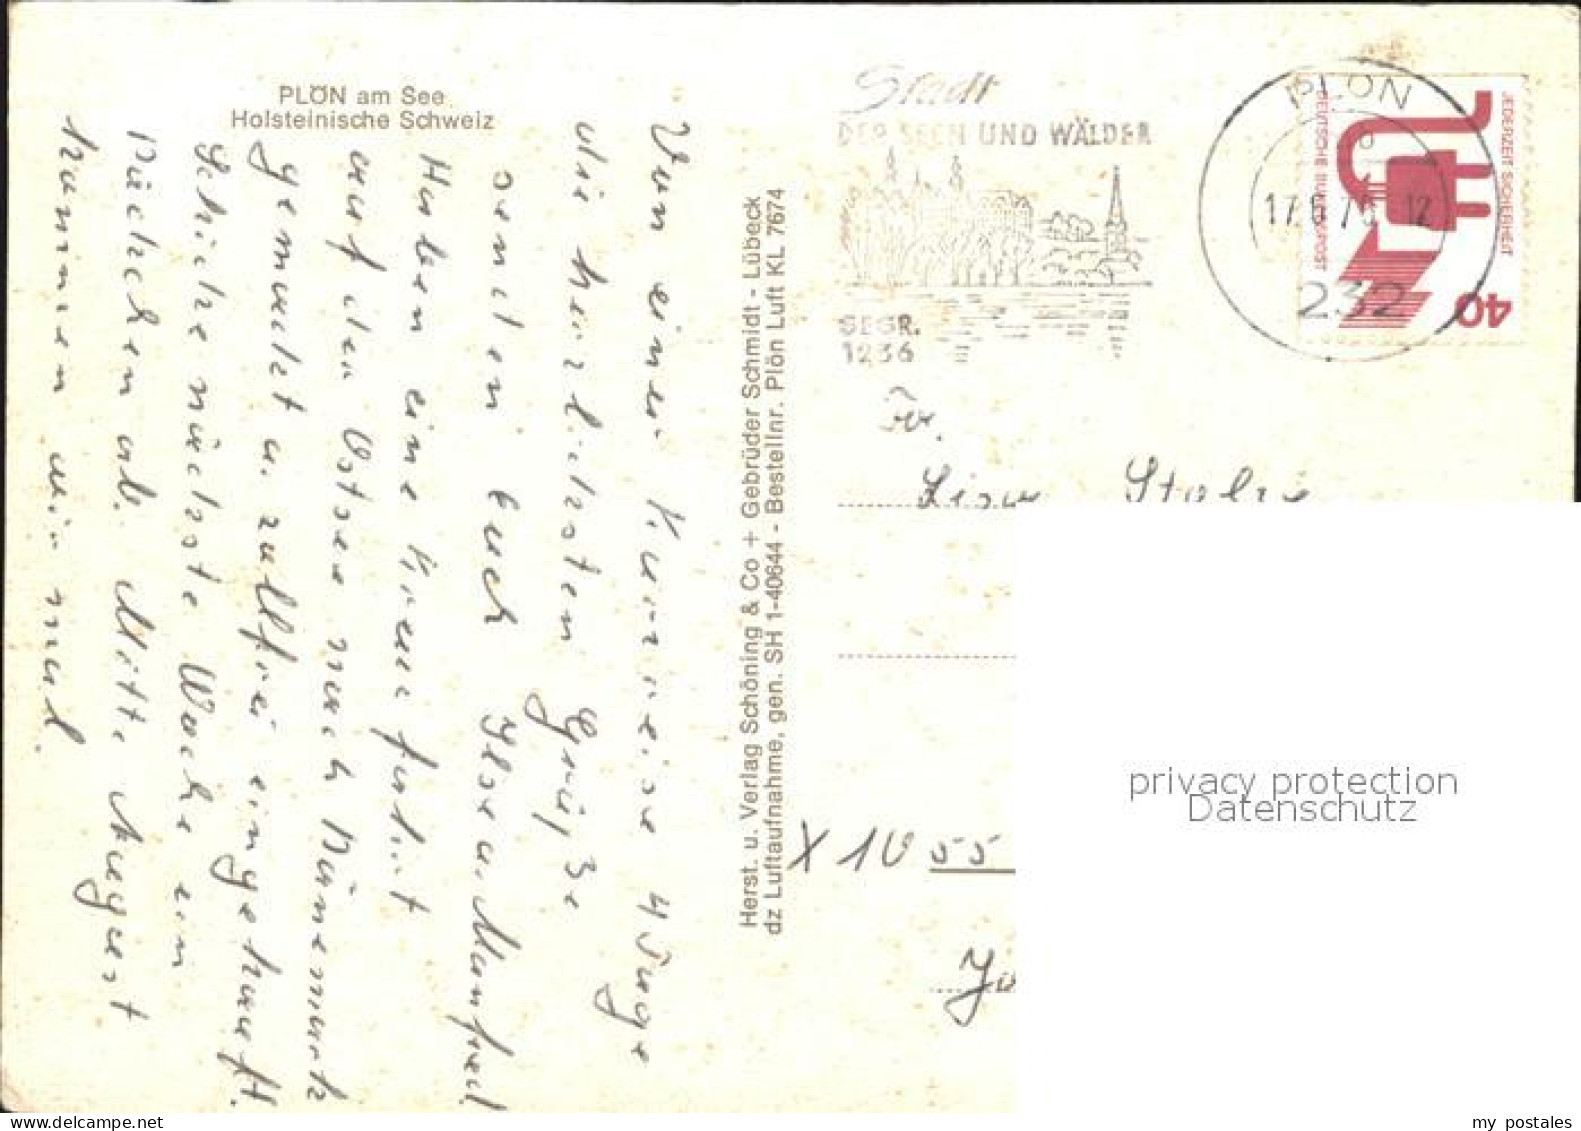 PLÖN am See
Holsteinische Schweiz
Von einer Kurzreise 4 Tage
die herzlichsten Grüße
senden Euch Ilse u. Manfred
Haben eine Kreuzfahrt
auf der Ostsee nach Dänemark
gemacht u. zollfrei eingekauft.
Schicke nächste Woche ein
Päckchen ab. Mitte August
kommen wir mal.
Herst. u. Verlag Schöning & Co + Gebrüder Schmidt - Lübeck
dz Luftaufnahme, gen. SH 1-40644 - Bestellnr. Plön Luft KL 7674
Stadt
DER SEEN UND WÄLDER
GEGR.
1236
PLÖN
232
JEDERZEIT SICHERHEIT
DEUTSCHE BUNDESPOST
40
Fr.
X 10 55
privacy protection
Datenschutz
my postales